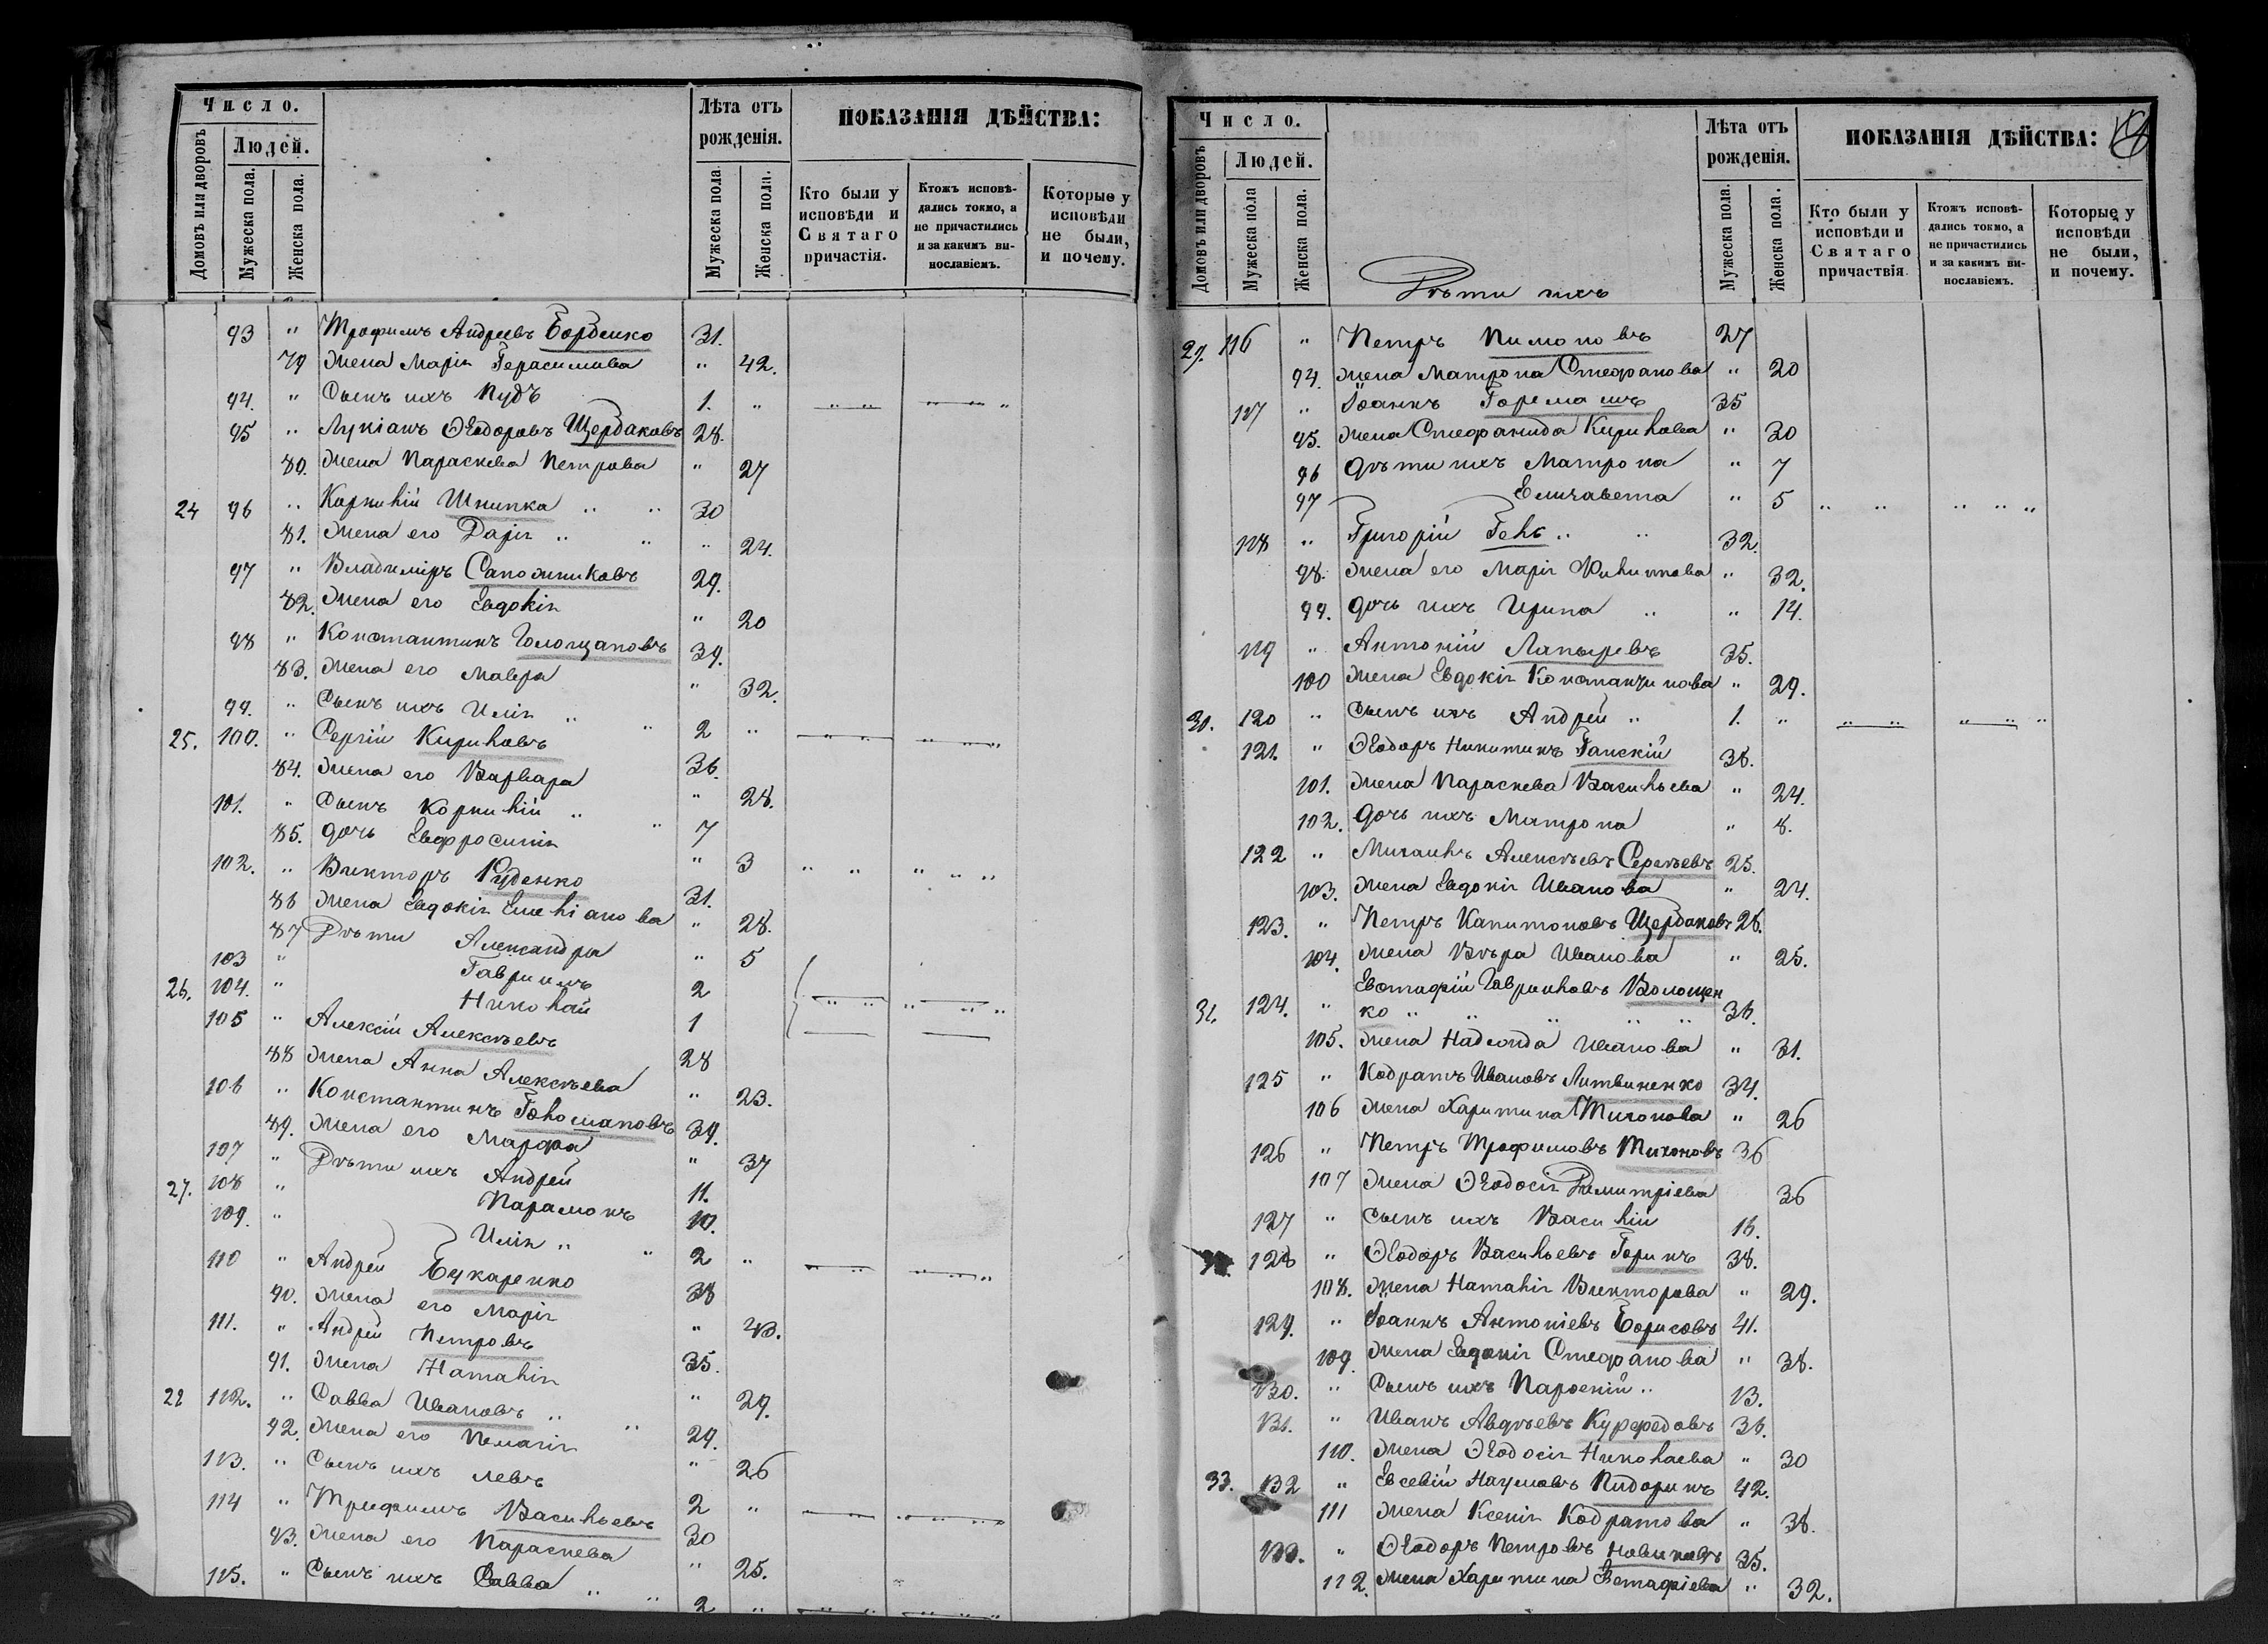 Число.
Домовъ или дворовъ
Людей.
Мужеска пола.
Женска пола.
Лѣта отъ рожденія.
Мужеска пола
Женска пола.
ПОКАЗАНІЯ ДѢЙСТВА:
Кто были у исповѣди и Святаго причастія.
Ктожъ исповѣ-дались токмо, а не причастились и за какимъ ви-нославіемъ.
Которые у исповѣди не были, и почему.
93 " Трофимъ Андреевъ Борденко 31.
79 Жена Марія Герасимова " 42.
94. " Сынъ ихъ Пудъ 1. "
95 " Лукіанъ Ѳеодоровъ Щербаковъ 28.
80. Жена Параскева Петрова " 27
24 96 " Корнилій Шкипка " " 30
81. Жена его Дарія " " " 24.
97 " Владиміръ Сапожниковъ 29.
82. Жена его Евдокія " 20
98 " Константинъ Голощаповъ 39.
83. Жена его Мавра " 32.
99. " Сынъ ихъ Илія " " 2 "
25. 100. " Сергій Кириловъ 36.
84. Жена его Варвара " 28.
101. " Сынъ Корнилій " " 7
85. дочь Евфросинія " 3
102. " Викторъ Руденко 31.
86 Жена Евдокія Емеліанова " 28.
87 Дѣти Александра " 5
103 " Гавриилъ 2
26. 104. " Николай 1
105 " Алексій Алексѣевъ 28
88 Жена Анна Алексѣева " 23.
106 " Константинъ Голошаповъ 39.
89. Жена его Марфа " 37
107 " Дѣти ихъ Андрей 11.
27. 108 " Парамонъ 10.
109. " Илія " " 2 "
110 " Андрей Букаренко 38
90. Жена его Марія " 43.
111. " Андрей Петровъ 35.
91. Жена Наталія " 29.
28 112. " Савва Ивановъ " " 29.
92. Жена его Пелагія " 26
113. " Сынъ ихъ Левъ 2 "
114 " Трифимъ Васильевъ 30
93. Жена его Параскева " 25.
115. " Сынъ ихъ Савва " " 2 "
Число.
Домовъ или дворовъ
Людей.
Мужеска пола
Женска пола.
Дѣти ихъ
Лѣта отъ рожденія.
Мужеска пола.
Женска пола.
ПОКАЗАНІЯ ДѢЙСТВА:
Кто были у исповѣди и Святаго причаствія
Ктожъ исповѣ-дались токмо, а не причастились и за какимъ ви-нославіемъ.
Которые у исповѣди не были, и почему.
29. 116 " Петръ Пимоновъ 27
94. Жена Матрона Стефанова " 20
117 " Іоаннъ Горемашъ 35
95. Жена Стефанида Кирилова " 30
96 Дѣти ихъ Матрона " 7
97 Елизавета " 5
118 " Григорій Гель " " 32.
98. Жена его Марія Филиппова " 32.
99. дочь ихъ Ирина " " 14.
119 " Антоній Лапыревъ 35.
100 Жена Евдокія Константинова " 29.
30. 120 " Сынъ ихъ Андрей " 1. "
121. " Ѳеодоръ Никитинъ Ганскій 38.
101. Жена Параскева Васильева " 24.
102. Дочь ихъ Матрона " 8.
122 " Михаилъ Алексѣевъ Сергѣевъ 25.
103. Жена Евдокія Иванова " 24.
123. " Петръ Капитоновъ Щербаковъ 26.
104. Жена Вѣра Иванова " 25.
Евстафій Гавриловъ Волощен
31. 124. " ко " " " " " 36.
105. Жена Надежда Иванова " 31.
125 " Кодратъ Ивановъ Литвиненко 34.
106 Жена Харитина Тихонова " 26
126 " Петръ Трофимовъ Тихоновъ 36
107 Жена Ѳеодосія Димитріева 36
127 " Сынъ ихъ Василій 16.
128 " Ѳеодоръ Васильевъ Горинъ 38.
108. Жена Наталія Викторова " 29.
129. " Іоаннъ Антоніевъ Борисовъ 41.
109. Жена Евдокія Стефанова " 38.
130. " Сынъ ихъ Парѳеній " 13.
131. " Иванъ Авдѣевъ Куреѳедовъ 36.
110. Жена Ѳеодосія Николаева " 30
33. 132 " Евсевій Наумовъ Пидоринъ 42.
111 Жена Ксенія Кодратова " 38.
133. " Ѳеодоръ Петровъ Новиковъ 35.
112. Жена Харитина Евстафіева " 32.